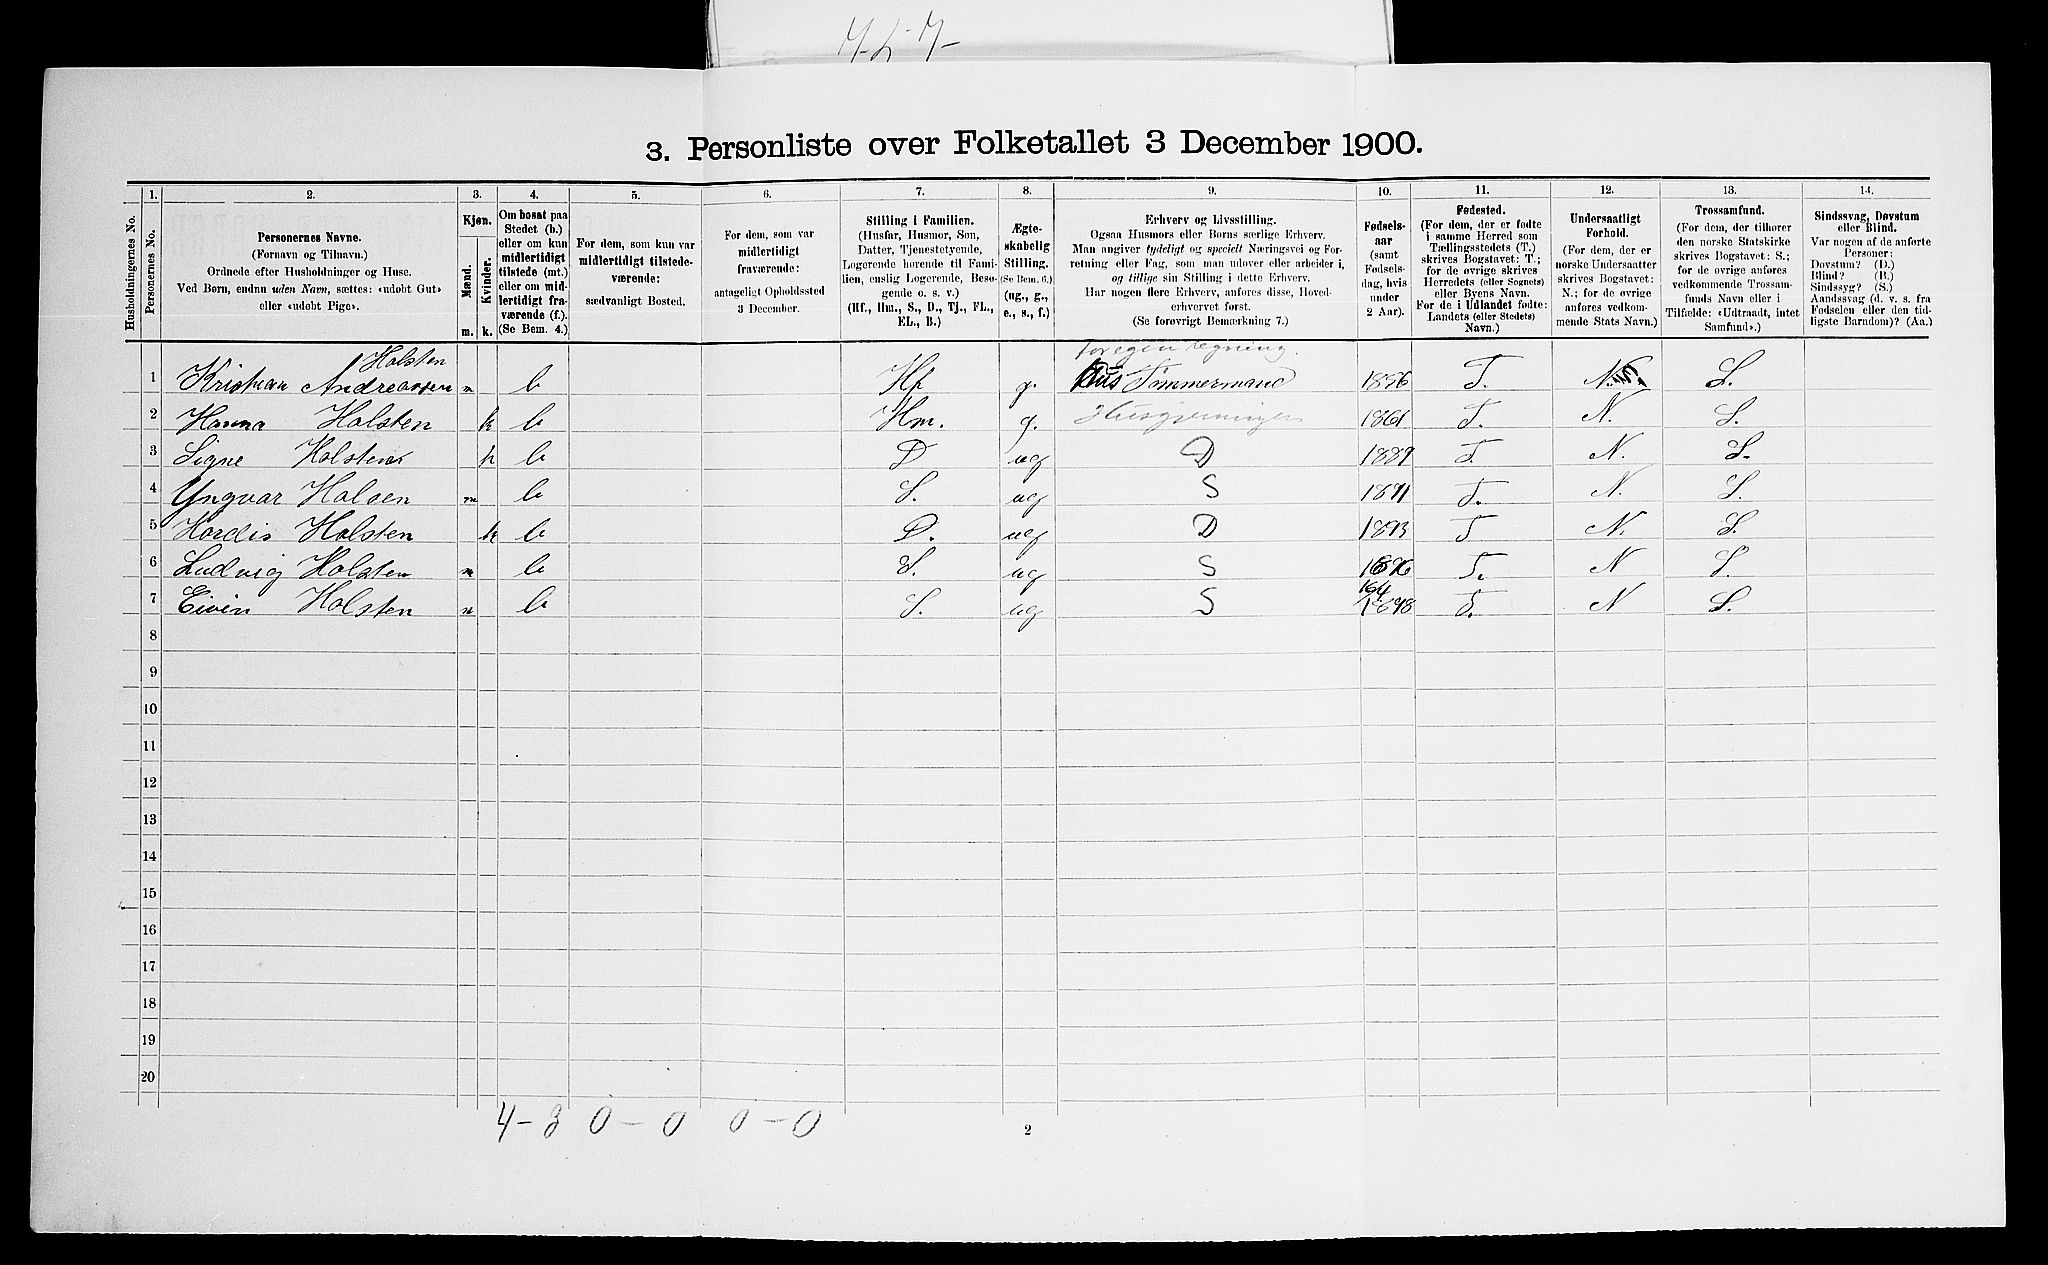 3. Personliste over Folketallet 3 December 1900.
Husholdningernes No.
1. Personernes No.
2. Personernes Navne.
(Fornavn og Tilnavn.)
Ordnede efter Husholdninger og Huse.
Ved Børn, endnu uden Navn, sættes: «udøbt Gut»
eller «udøbt Pige».
3. Kjøn.
Mænd. m.
Kvinder. k.
4. Om bosat paa
Stedet (b.)
eller om kun
midlertidigt
tilstede (mt.)
eller om mid-
lertidigt fra-
værende (f.).
(Se Bem. 4.)
5. For dem, som kun var
midlertidigt tilstede-
værende:
sædvanligt Bosted.
6. For dem, som var
midlertidigt
fraværende:
antageligt Opholdssted
3 December.
7. Stilling i Familien.
(Husfar, Husmor, Søn,
Datter, Tjenestetyende,
Logerende hørende til Fami-
lien, enslig Logerende, Besø-
gende o. s. v.)
(Hf., Hm., S., D., Tj., FL.,
EL., B.)
8. Ægte-
skabelig
Stilling.
(Se Bem. 6.)
(ug., g.,
e., s., f.)
9. Erhverv og Livsstilling.
Ogsaa Husmors eller Børns særlige Erhverv.
Man angiver tydeligt og specielt Næringsvei og For-
retning eller Fag, som man udøver eller arbeider i,
og tillige sin Stilling i dette Erhverv.
Har nogen flere Erhverv, anføres disse, Hoved-
erhvervet først.
(Se forøvrigt Bemærkning 7.)
10. Fødsels-
aar
(samt
Fødsels-
dag, hvis
under
2 Aar).
11. Fødested.
(For dem, der er fødte
i samme Herred som
Tællingsstedets (T.)
skrives Bogstavet: T.;
for de øvrige skrives
Herredets (eller Sognets)
eller Byens Navn.
For de i Udlandet fødte:
Landets (eller Stedets)
Navn.)
12. Undersaatligt
Forhold.
(For dem, der er
norske Undersaatter
skrives Bogstavet:
N.; for de øvrige
anføres vedkom-
mende Stats Navn.)
13. Trossamfund.
(For dem, der tilhører
den norske Statskirke
skrives Bogstavet: S.;
for de øvrige anføres
vedkommende Trossam-
funds Navn eller i
Tilfælde: «Udtraadt, intet
Samfund».)
14. Sindssvag, Døvstum
eller Blind.
Var nogen af de anførte
Personer:
Døvstum? (D.)
Blind? (B.)
Sindssyg? (S.)
Aandssvag (d. v. s. fra
Fødselen eller den tid-
ligste Barndom)? (Aa.)
Holsten For egen regning.
1 Kristian Andreassen m b Hf g. Tømmermand T. N. S.
2 Hanna Holsten k b Hm. g. Husgjerninger 1861 T. N. S.
3 Signe Holsten k b D ug D 1889 T. N. S.
4 Yngvar Holsen m b S. ug S 1891 T. N. S.
5 Hordis Holsten k b D. ug D 1893 T N. S.
6 Ludvig Holsten m b S. ug S 1896 T. N S.
7 Eivin Holsten m b S. ug S 1898 T. N S.
8
9
10
11
12
13
14
15
16
17
18
19
20
4-3 0-0 0-0
2